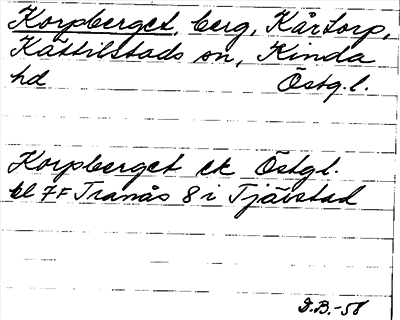 Korpberget, berg, Kårtorp,
Kättilstads sn, Kinda
hd Östg.l.
Korpberget ek Östgl.
bl 7F Tranås 8 i Tjärstad
D.B.-58